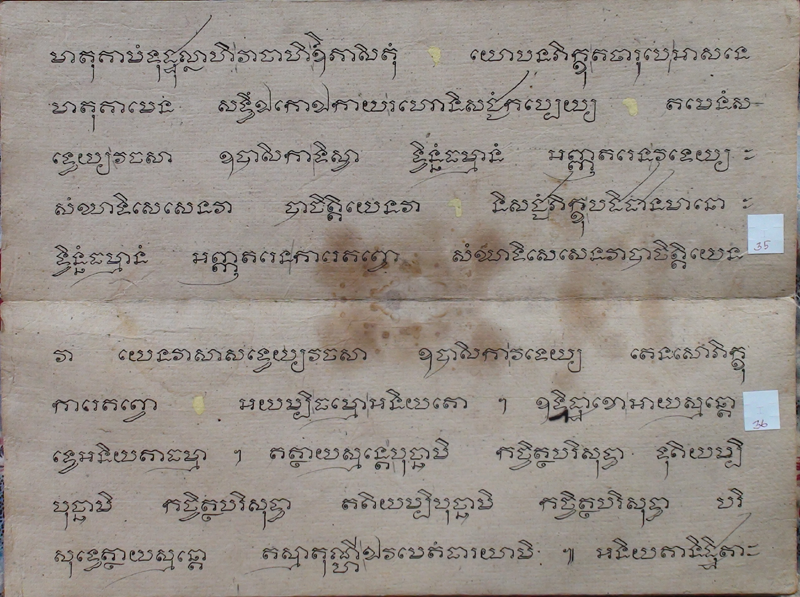 មាតុគាមំទុដ្ឋុល្លាហិវាចាហិឱភាសិតុំ យោបនភិក្ខុតថារូបេអាសនេ
មាតុគាមេន សទ្ធឹឯកោឯកាយរហោនិសជ្ជំកប្បេយ្យ តមេនំស
ទ្ធេយ្យវចសា ឧបាសិកាទិស្វា ទ្វិន្នំធម្មានំ អញ្ញតរេនវទេយ្យ
សំឃាទិសេសេនវា បាចិត្តិយេនវា និសជ្ជំភិក្ខុបដិជានមានោ
ទ្វិន្នំធម្មានំ អញ្ញតរេនការេតព្វោ សំឃាទិសេសេនវាបាចិត្តិយេន
វា យេនវាសាសទ្ធេយ្យវចសា ឧបាសិកាវទេយ្យ តេនសោភិក្ខុ
ការេតព្វោ អយម្បិធម្មោអនិយតោ ។ ឧទ្ទិដ្ឋាខោអាយស្មន្តោ
ទ្វេអនិយតាធម្មា ។ តត្ថាយស្មន្តេបុច្ឆាមិ កច្ចិត្ថបរិសុទ្ធា ទុតិយម្បិ
បុច្ឆាមិ កច្ចិត្ថបរិសុទ្ធា តតិយម្បិបុច្ឆាមិ កច្ចិត្ថបរិសុទ្ធា បរិ
សុទ្ធេត្ថាយស្មន្តោ តស្មាតុណ្ហីឯវមេតំធារយាមិ ៕ អនិយតានិដ្ឋិតា
35
36